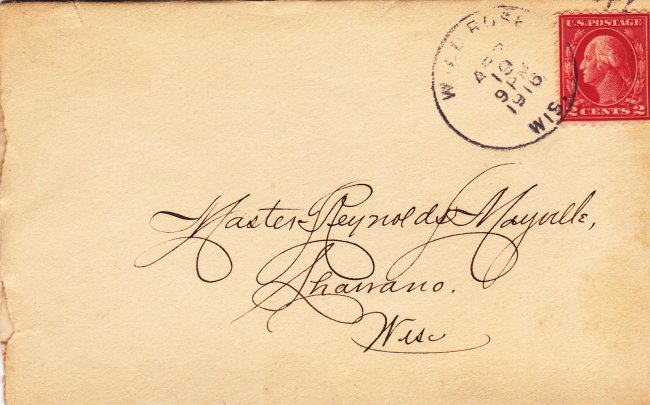 ROSE
10
PM
1916
WIS.
U.S. POSTAGE
2 CENTS 2
Master Reynolds Mayville,
Shawano.
Wis